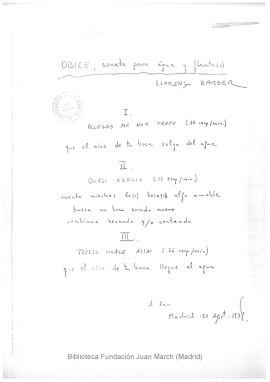 OBICE, sonata para agua y
LLORENÇ BARBER
I.
ALLEGRO MA NON TROPO (20 resp/min.)
que el aire de tu boca salga del agua
II
QUASI ADAGIO (12 resp/min)
cuenta mientras besas algo amable
busca un beso sonido nuevo
continua besando y/o contando
III
PRESTO ASSAI (26 resp/min)
que el aire de tu boca llegue al agua
A
Madrid Agst.
Biblioteca Fundación Juan March (Madrid)